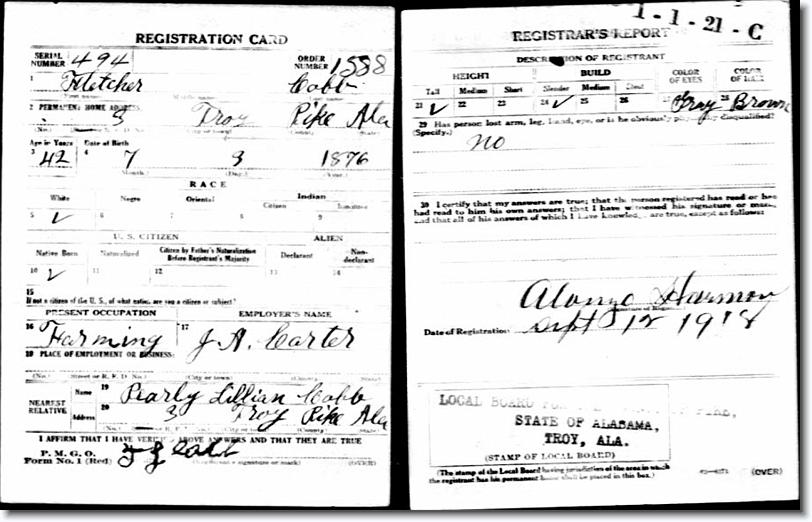 REGISTRATION CARD
SERIAL NUMBER 494
ORDER NUMBER 1588
1 Fletcher Cobb
2 PERMANENT HOME ADDRESS:
3 Troy Pike Ala
(No.) (City or town) (County) (State)
Age in Years Date of Birth
3 42 4 7 3 1876
(Month.) (Day.) (Year.)
RACE
White Negro Oriental Indian
Citizen Noncitizen
5 ✓ 6 7 8 9
U. S. CITIZEN ALIEN
Native Born Naturalized Citizen by Father's Naturalization Before Registrant's Majority Declarant Non-declarant
10 ✓ 11 12 13 14
15
If not a citizen of the U. S., of what nation are you a citizen or subject?
PRESENT OCCUPATION EMPLOYER'S NAME
16 Farming 17 J. A. Carter
18 PLACE OF EMPLOYMENT OR BUSINESS:
(No.) (Street or R. F. D. No.) (City or town) (County) (State)
NEAREST RELATIVE
Name 19 Pearly Lillian Cobb
Address 20 3 Troy Pike Ala
(No.) (City or town) (County) (State)
I AFFIRM THAT I HAVE VERIFIED ABOVE ANSWERS AND THAT THEY ARE TRUE
P. M. G. O.
Form No. 1 (Red) Cobb
(Registrant's signature or mark) (OVER)
1-1-21-C
REGISTRAR'S REPORT
DESCRIPTION OF REGISTRANT
HEIGHT BUILD COLOR OF EYES COLOR OF HAIR
Tall Medium Short Slender Medium Stout
21 ✓ 22 23 24 ✓ 25 26 27 Gray 28 Brown
29 Has person lost arm, leg, hand, eye, or is he obviously physically disqualified?
(Specify.) no
30 I certify that my answers are true; that the person registered has read or has
had read to him his own answers; that I have witnessed his signature or mark,
and that all of his answers of which I have knowledge are true, except as follows:
Alonzo Harmon
(Signature of Registrar)
Date of Registration Sept 12 1918
LOCAL BOARD FOR THE COUNTY OF PIKE,
STATE OF ALABAMA,
TROY, ALA.
(STAMP OF LOCAL BOARD)
(The stamp of the Local Board having jurisdiction of the area in which
the registrant has his permanent home shall be placed in this box.)
(OVER)